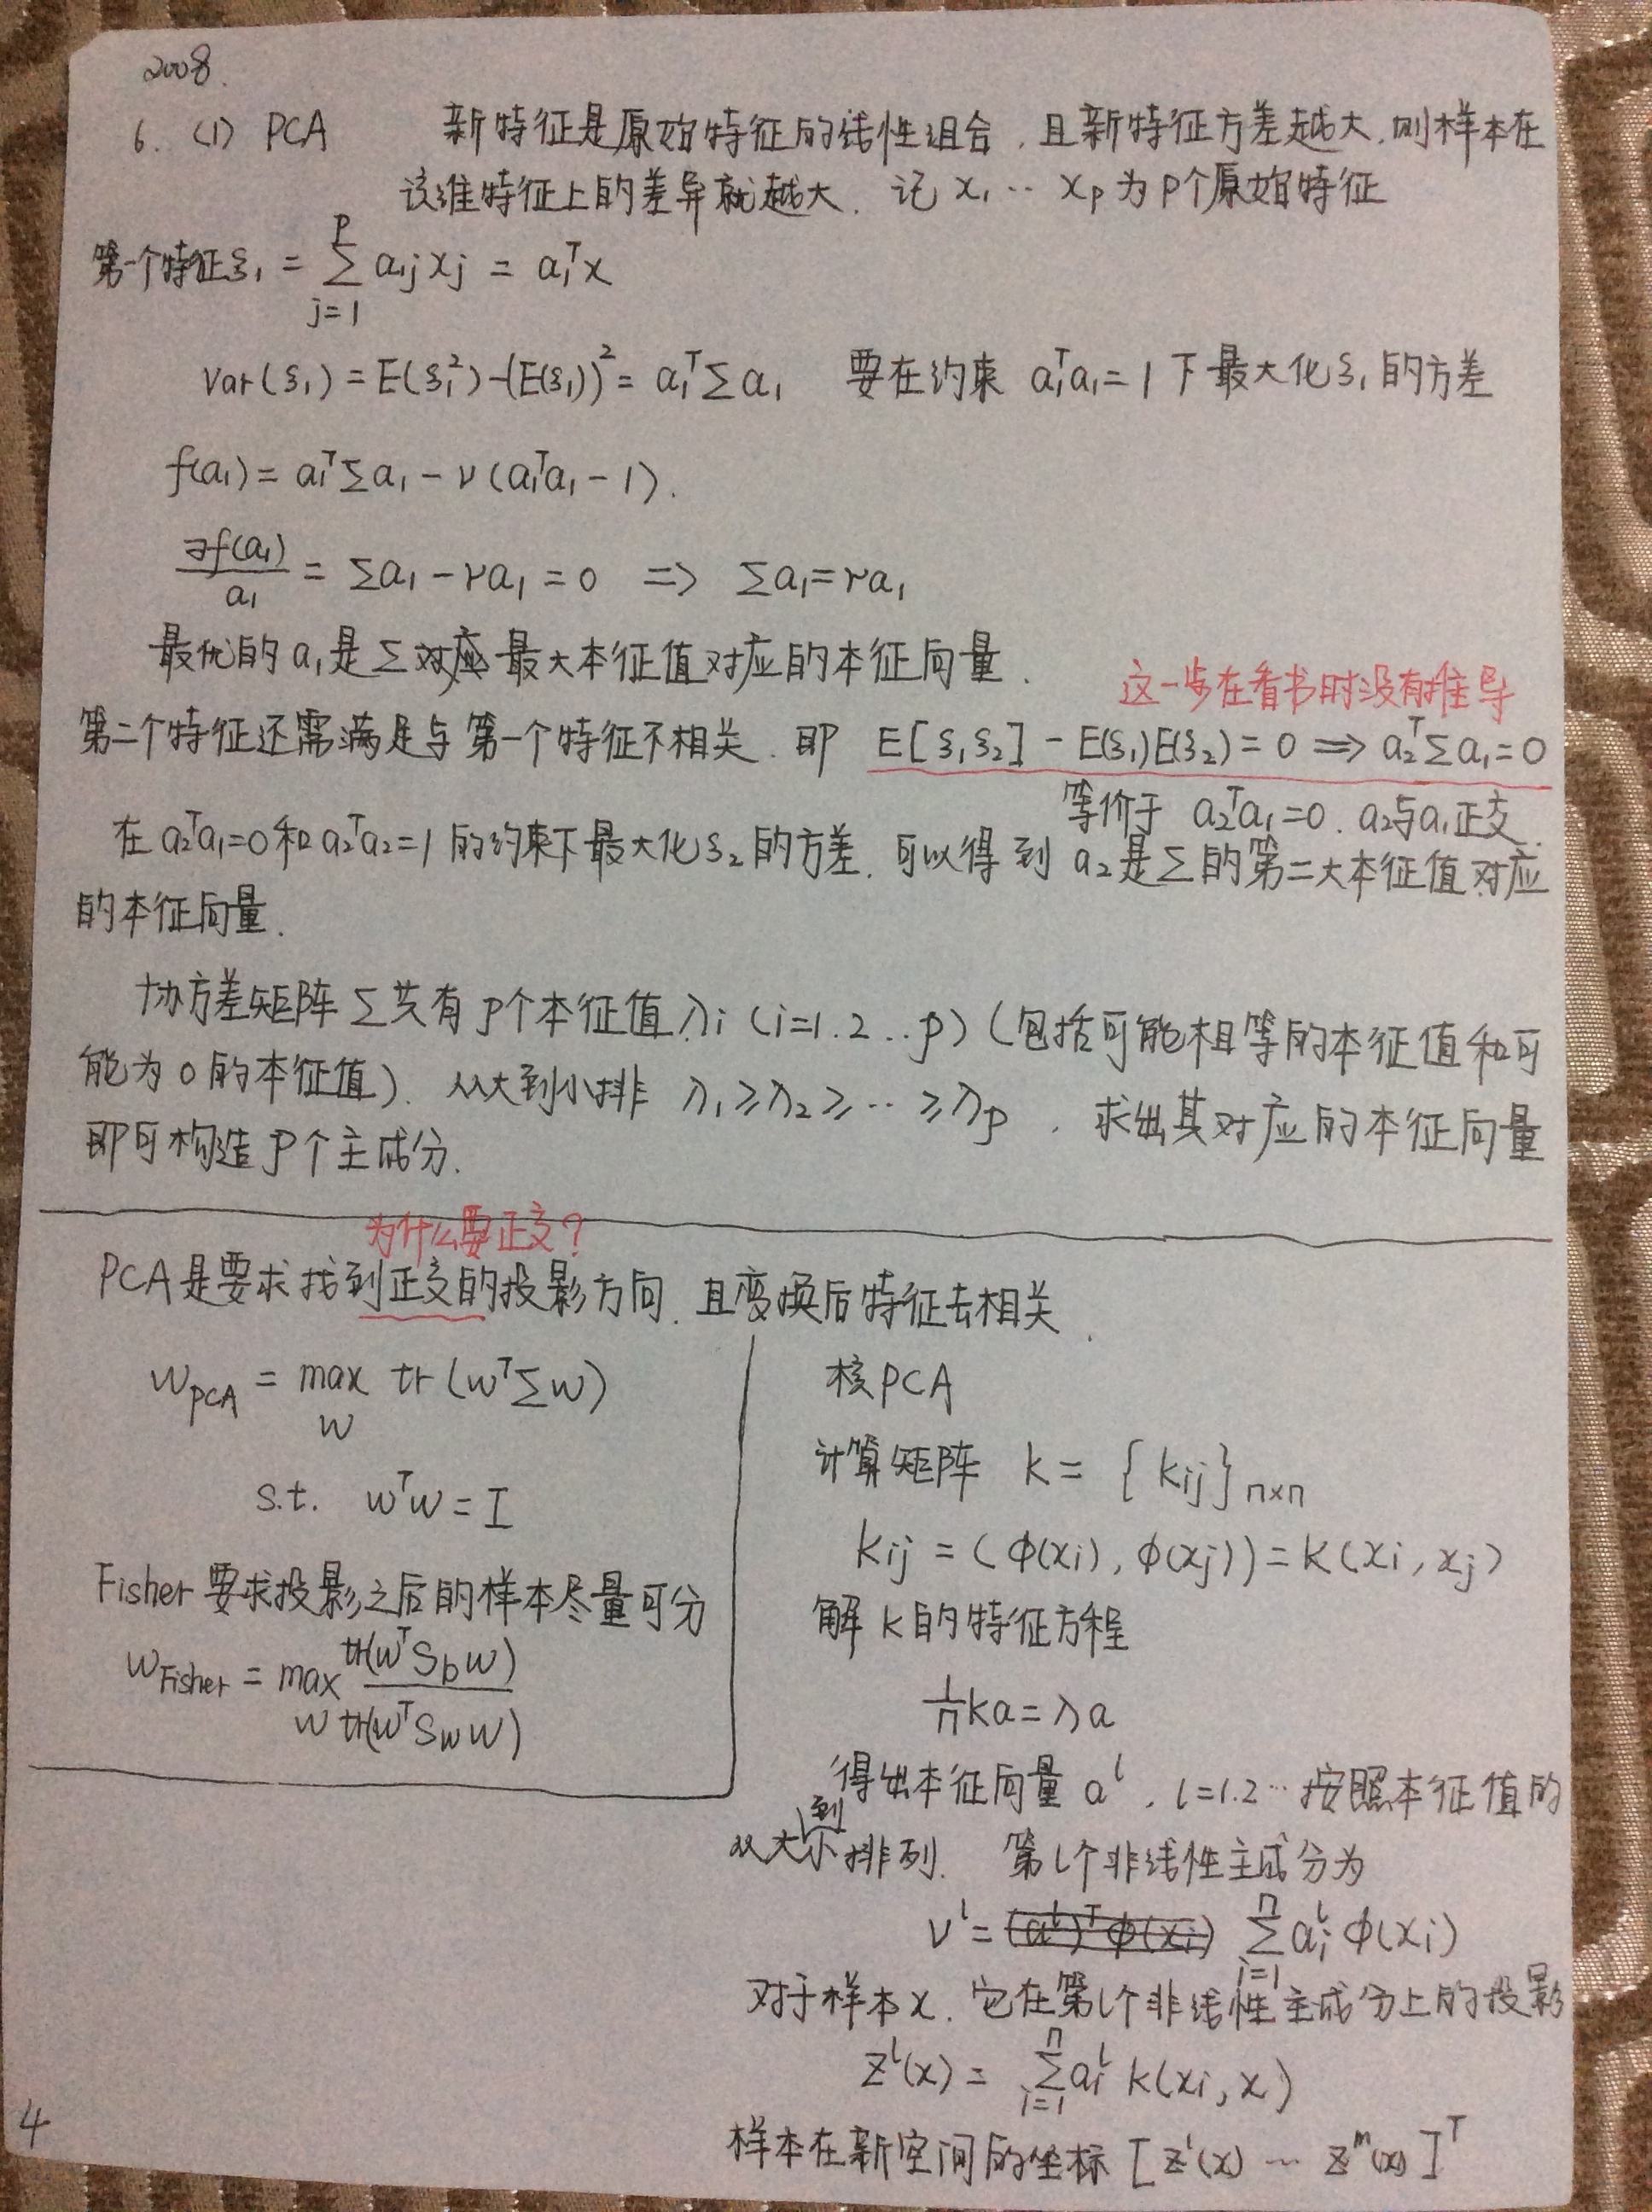 2008.
6. (1) PCA 新特征是原始特征的线性组合，且新特征方差越大，则样本在
该维特征上的差异就越大. 记 x₁ ⋯ xₚ 为P个原始特征
第一个特征ξ₁ = ∑_{j=1}^{P} a₁ⱼxⱼ = a₁ᵀx
Var(ξ₁) = E(ξ₁²)-(E(ξ₁))² = a₁ᵀ∑a₁ 要在约束 a₁ᵀa₁=1 下最大化ξ₁的方差
f(a₁) = a₁ᵀ∑a₁ - ν(a₁ᵀa₁ - 1).
∂f(a₁)/a₁ = ∑a₁ - νa₁ = 0 => ∑a₁=νa₁
最优的a₁是∑对应最大本征值对应的本征向量.
这一步在看书时没有推导
第二个特征还需满足与第一个特征不相关. 即 E[ξ₁ξ₂] - E(ξ₁)E(ξ₂) = 0 => a₂ᵀ∑a₁=0
等价于 a₂ᵀa₁=0. a₂与a₁正交.
在a₂ᵀa₁=0和a₂ᵀa₂=1的约束下最大化ξ₂的方差. 可以得到 a₂是∑的第二大本征值对应
的本征向量.
协方差矩阵∑共有p个本征值λi (i=1.2...p) (包括可能相等的本征值和可
能为0的本征值). 从大到小排 λ₁≥λ₂≥⋯≥λₚ . 求出其对应的本征向量
即可构造p个主成分.
为什么要正交?
PCA是要求找到正交的投影方向. 且变换后特征去相关.
W_PCA = max_W tr(WᵀΣW)
s.t. WᵀW = I
Fisher要求投影之后的样本尽量可分
W_Fisher = max_W tr(WᵀS_bW)/tr(WᵀS_wW)
核PCA
计算矩阵 K = {Kij}n×n
Kij = (φ(xi), φ(xj)) = K(xi, xj)
解K的特征方程
1/n Ka = λa
得出本征向量 aˡ, l=1.2⋯ 按照本征值的
从大到小排列. 第l个非线性主成分为
vˡ = (aˡ)ᵀφ(xi) ∑_{i=1}^{n} aᵢˡ φ(xi)
对于样本x. 它在第l个非线性主成分上的投影
zˡ(x) = ∑_{i=1}^{n} aᵢˡ K(xi, x)
样本在新空间的坐标 [z¹(x) ⋯ zᵐ(x)]ᵀ
4